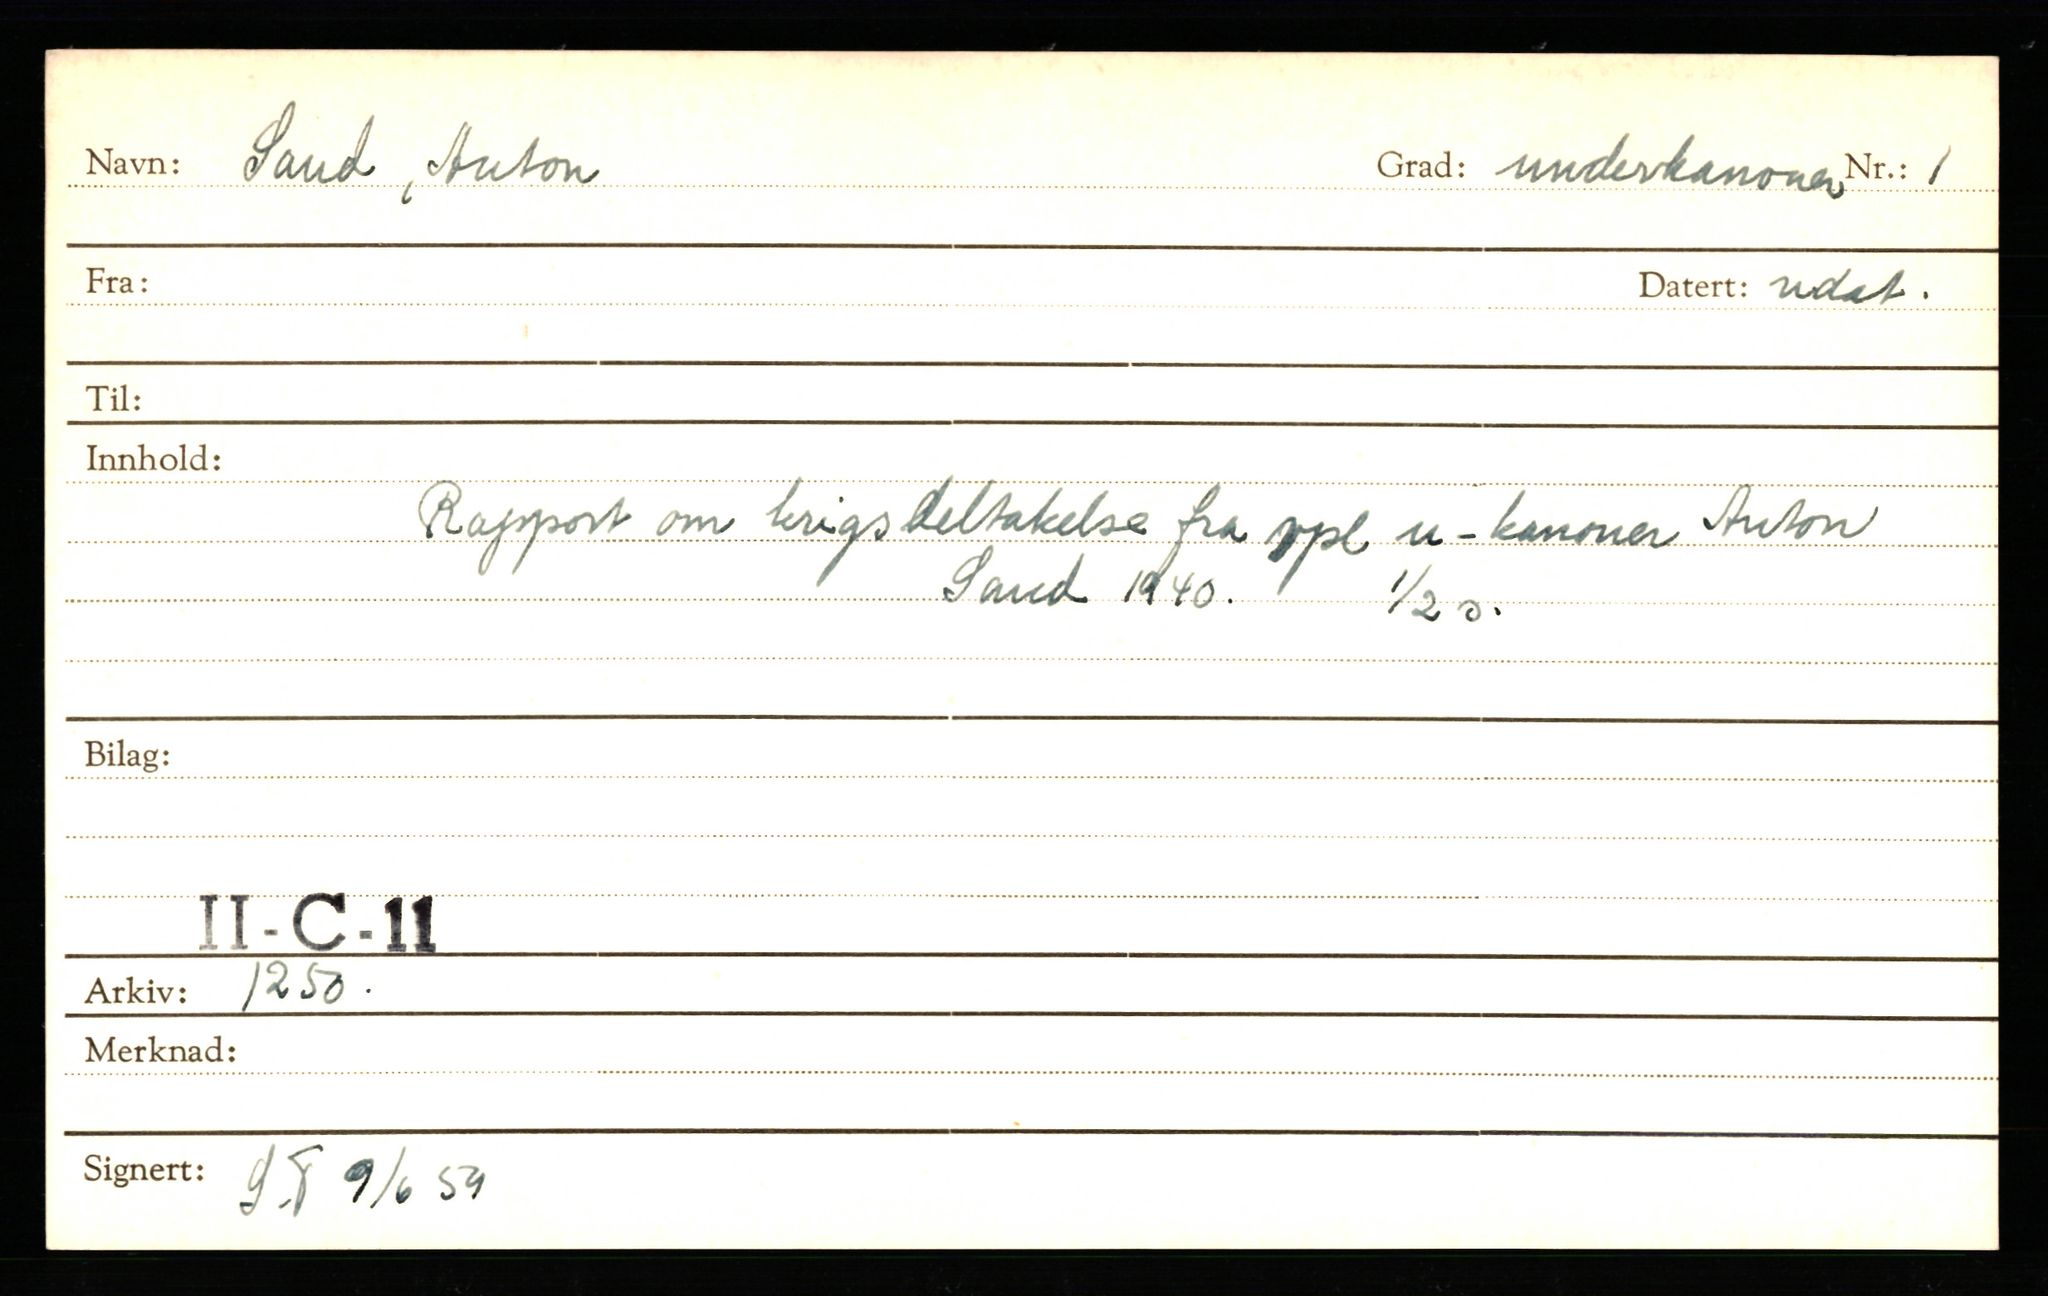 Navn: Sand, Anton Grad: underkanoner Nr.: 1
Fra: Datert: udat.
Til:
Innhold:
Rapport om krigsdeltakelse fra vpl u-kanoner Anton
Sand 1940. 1/2 s.
Bilag:
II-C-11
Arkiv: 1250.
Merknad:
Signert: 9/6 59